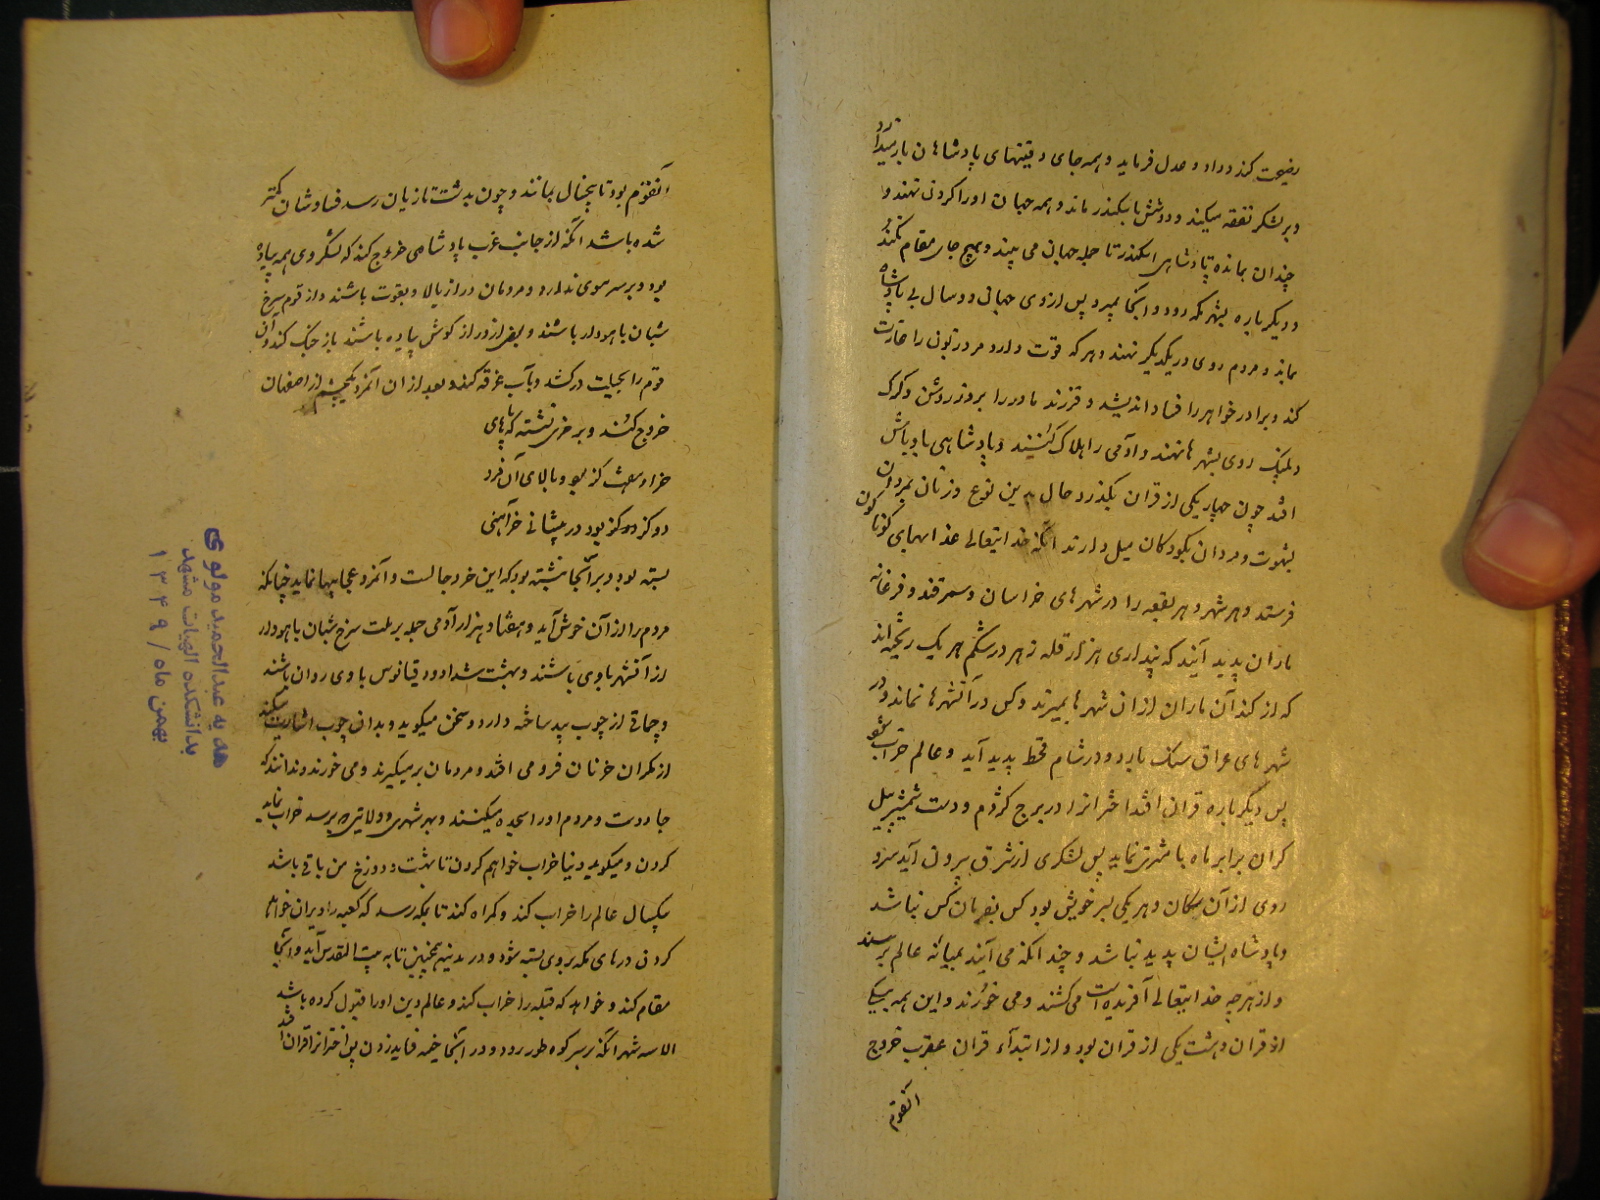 رضیحت کند و داد و عدل فرماید و همه جای دفینهای پادشاهان بازمیدارد
و بر لشکر نفقه میکند و دوشش با سکندر ماند و همه جهان اورا گردن نهند و
چندان بمانده پادشاهی اسکندر تا جمله جهان می بیند و بهیچ جای مقام نکند
و دیگر باره بشهر مکه رود و آنجا بمیرد پس ازوی جهانی دو سال بی پادشاه
بماند و مردم روی در یکدیگر نهند و هر که قوت دارد مر دزبون را غارت
کند و برادر خواهر را فساد اندیشد و فرزند مادر را بروز روشن و گرگ
و پلنگ روی بشهرها نهند و آدمی را هلاک کنند و پادشاهی با و باش
افتد چون چهار یکی از قران بگذرد حال بدین نوع و زنان بمردان
بشهوت و مردان بکودکان میل دارند آنگه خدایتعالی عذابهای گوناگون
فرستد و هر شهر و هر بقعه را در شهرهای خراسان و سمرقند و فرغانه
ماران پدید آیند که پنداری هزار قله زهر در شکم هر یک ریخته اند
که از گند آن ماران ازان شهرها بمیرند و کس در آنشهرها نماند و در
شهرهای عراق سنگ بارد و در شام قحط پدید آید و عالم خراب شود
پس دیگر باره قران افتد اخترانرا در برج کژدم و دست شمشیر
کران برابر ماه با مشرق نماید پس لشکری از شرق بیرون آید سرو
روی از آن سکان و هر یکی بسر خویش بود کس بفرمان کس نباشد
و پادشاه ایشان پدید نباشد و چند انکه می آیند بمیانه عالم برسند
و از هر چه خدایتعالی آفریده است می کشند و می خورند و این همه
از قران و هشت یکی از قران بود و از ابتدآء قران عقرب خروج
آنقوم
آنقوم بود تا پنجسال بمانند و چون بدشت تازیان رسد فسادشان کمتر
شده باشد آنگه از جانب غرب پادشاهی خروج کند که لشکر وی همه پیاده
بود و بر سر موی ندارد و مردمان دراز بالا و بقوت باشند و از قوم سرخ
شبان باهودار باشند و بعض از دراز گوش پیاده باشند باز جنگ کند و آن
قوم را بحیلت در کشد و بآب غرقه کند و بعد ازان آنمرد یکچشم از اصفهان
خروج کند و بر خری نشسته که پای
خر او هشت کز بود و بالای آن مرد
دو کز بود در پیشانی خر آهنی
بسته بود و بر آنجا نبشته بود که این خر دجالست و آنمرد عجایبها نماید چنانکه
مردم را از آن خوش آید و هفتاد هزار آدمی جمله بر ملت سرخ شبان باهودار
از آنشهر با وی باشند و بهشت شداد و دقیانوس با وی روان باشند
و چماقی از چوب بید ساخته دارد و سخن میگوید و بدان چوب اشارت میکند
از مکران خر نان فرو می افتد و مردمان بر میگیرند و می خورند و ندانند که
جادوست و مردم اورا سجده میکنند و بهر شهری و ولایتی که برسد خراب نماید
کردن و میگوید دنیا خراب خواهم کردن تا بهشت و دوزخ من باقی باشد
یکسال عالم را خراب کند و گمراه کند تا بمکه رسد که کعبه را ویران خواهم
کردن درهای مکه بروی بسته شود و در مدینه همچنین تا به بیت المقدس آید و آنجا
مقام کند و خواهد که قبله را خراب کند و عالم دین اورا قبول کرده باشد
الا سه شهر آنگه بر سر کوه طور رود و در آنجا خیمه فرماید زدن پس اخترانرا قران افتد
هدیه به عبدالحمید مولوی
بدانشکده الهیات مشهد
بهمن ماه / ۱۳۴۹